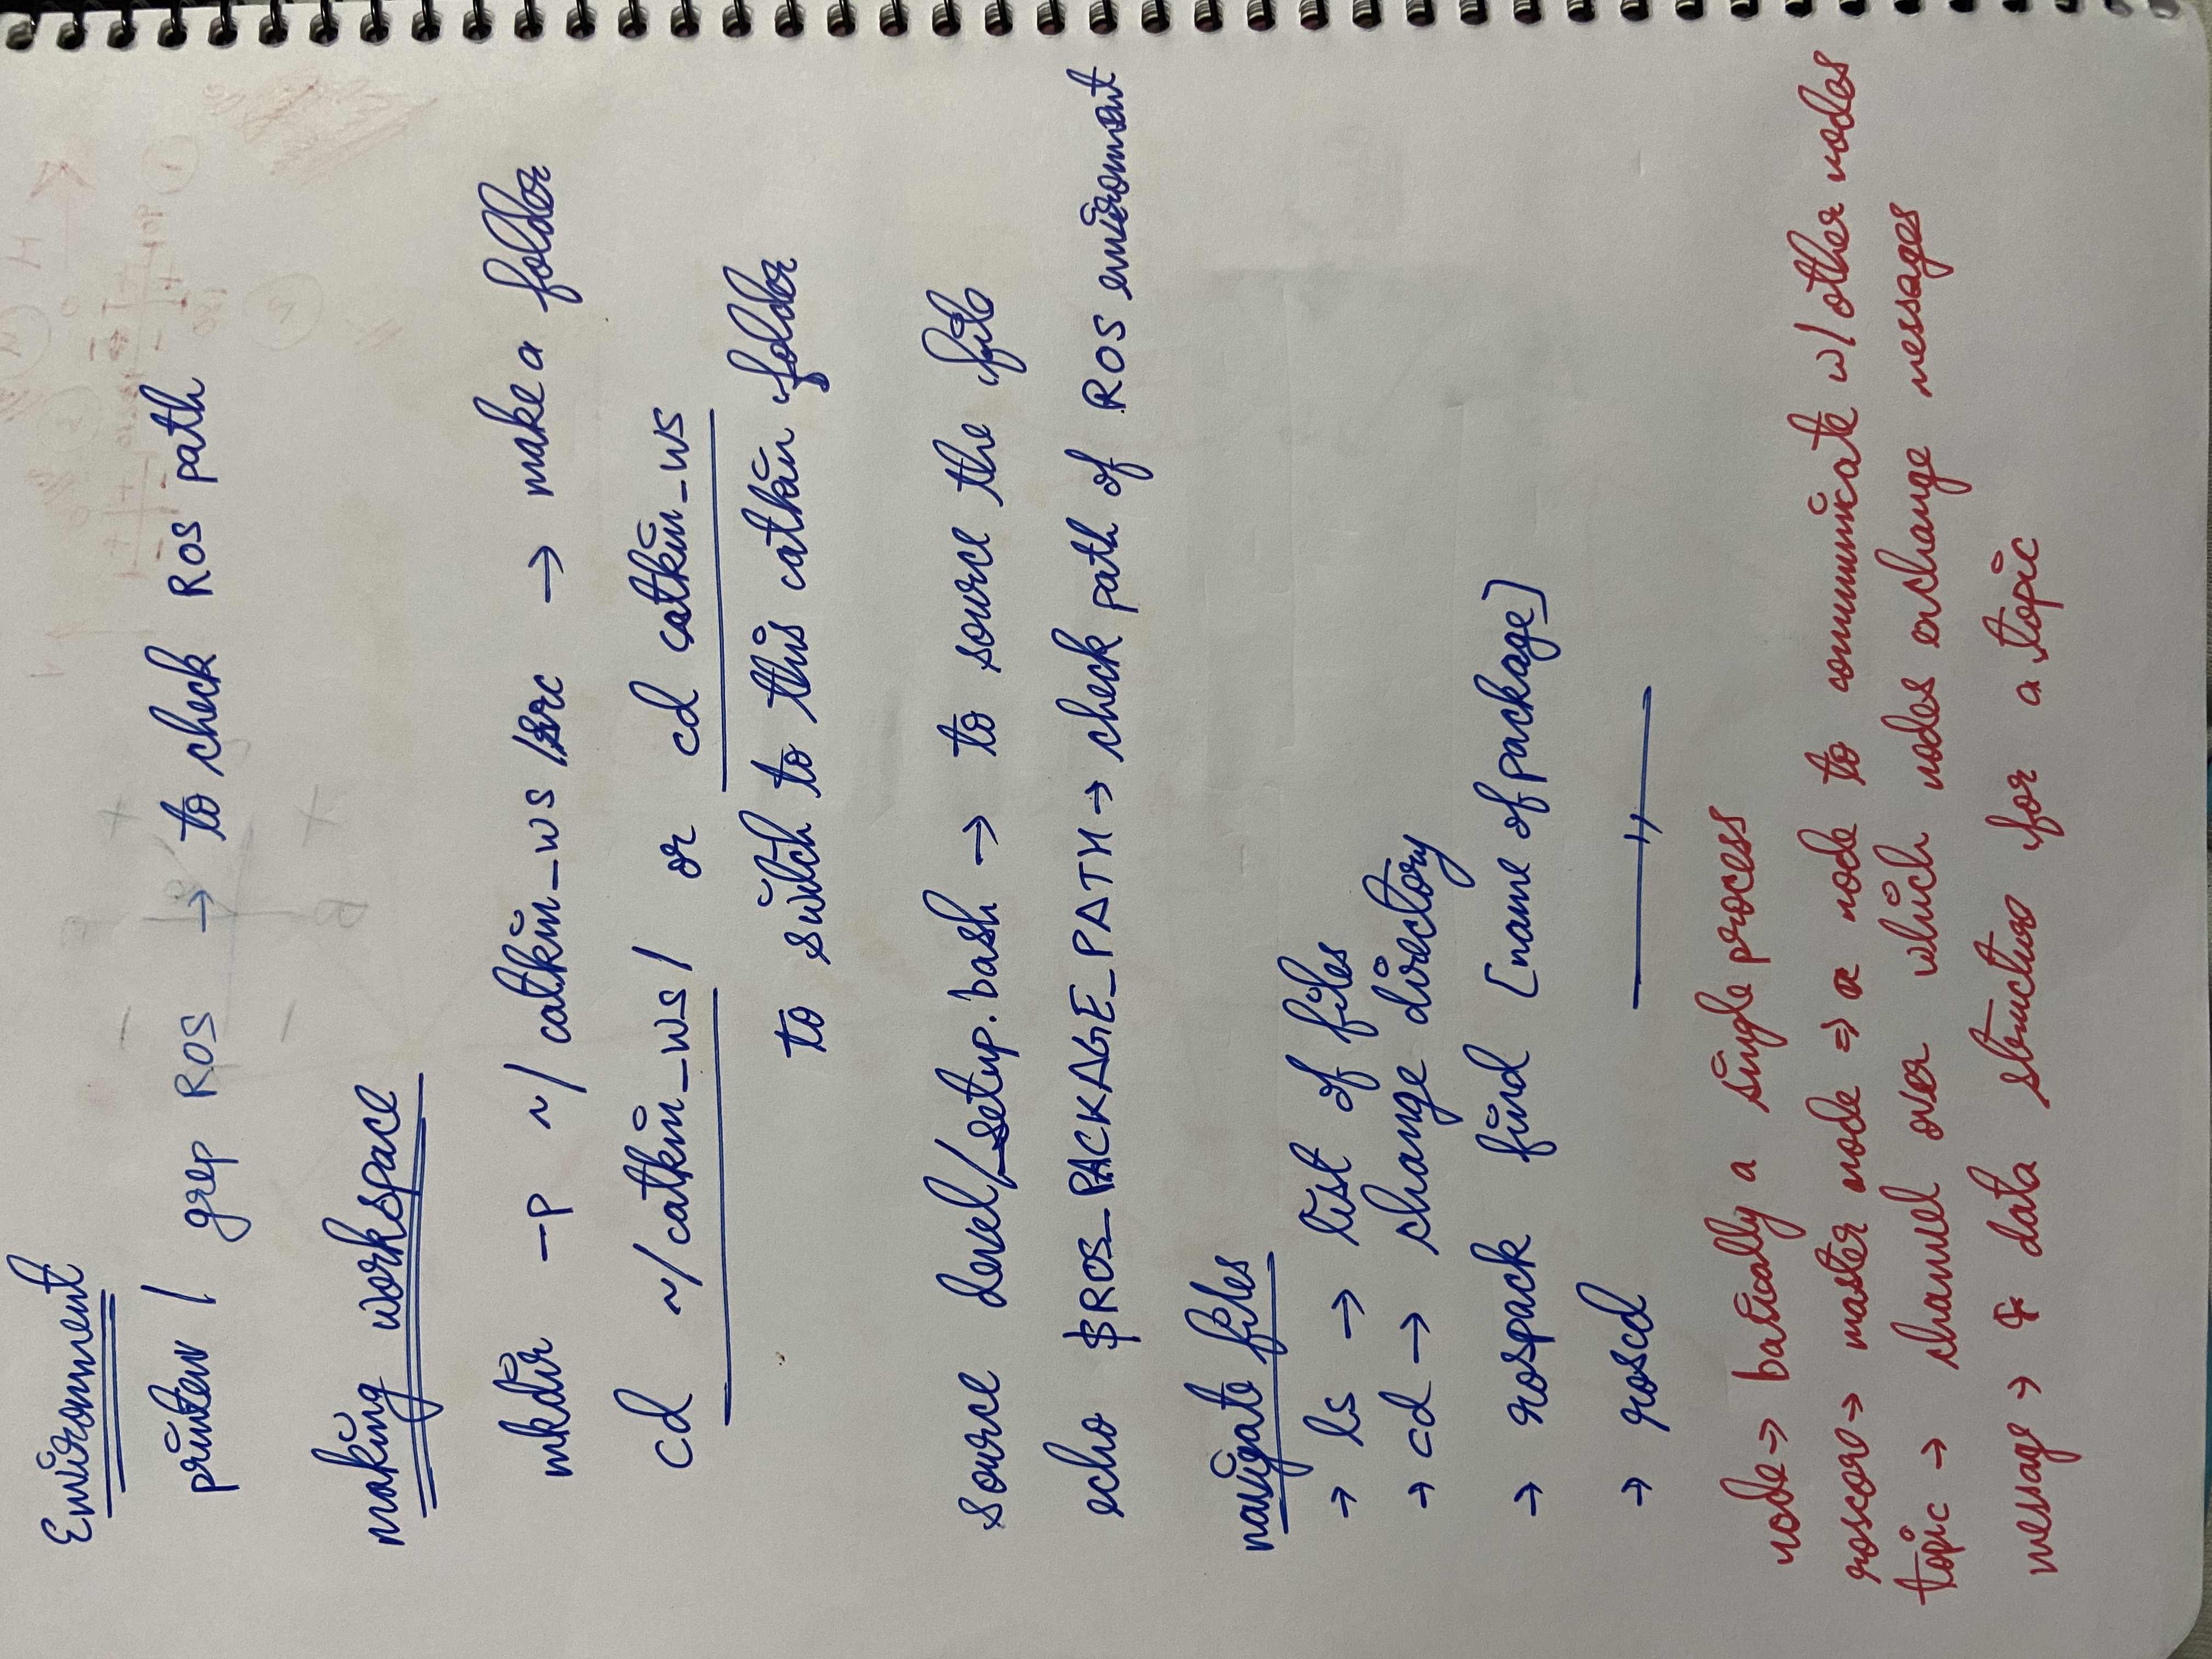 Environment
printenv | grep ROS → to check ROS path
making workspace
mkdir -p ~/catkin_ws/src → make a folder
cd ~/catkin_ws/ or cd catkin_ws
to switch to this catkin folder
source devel/setup.bash → to source the file
echo $ROS_PACKAGE_PATH → check path of ROS environment
navigate files
→ ls → list of files
→ cd → change directory
→ rospack find [name of package]
→ roscd —〃—
node → basically a single process
roscore → master node ⇒ a node to communicate w/ other nodes
topic → channel over which nodes exchange messages
message → data structure for a topic